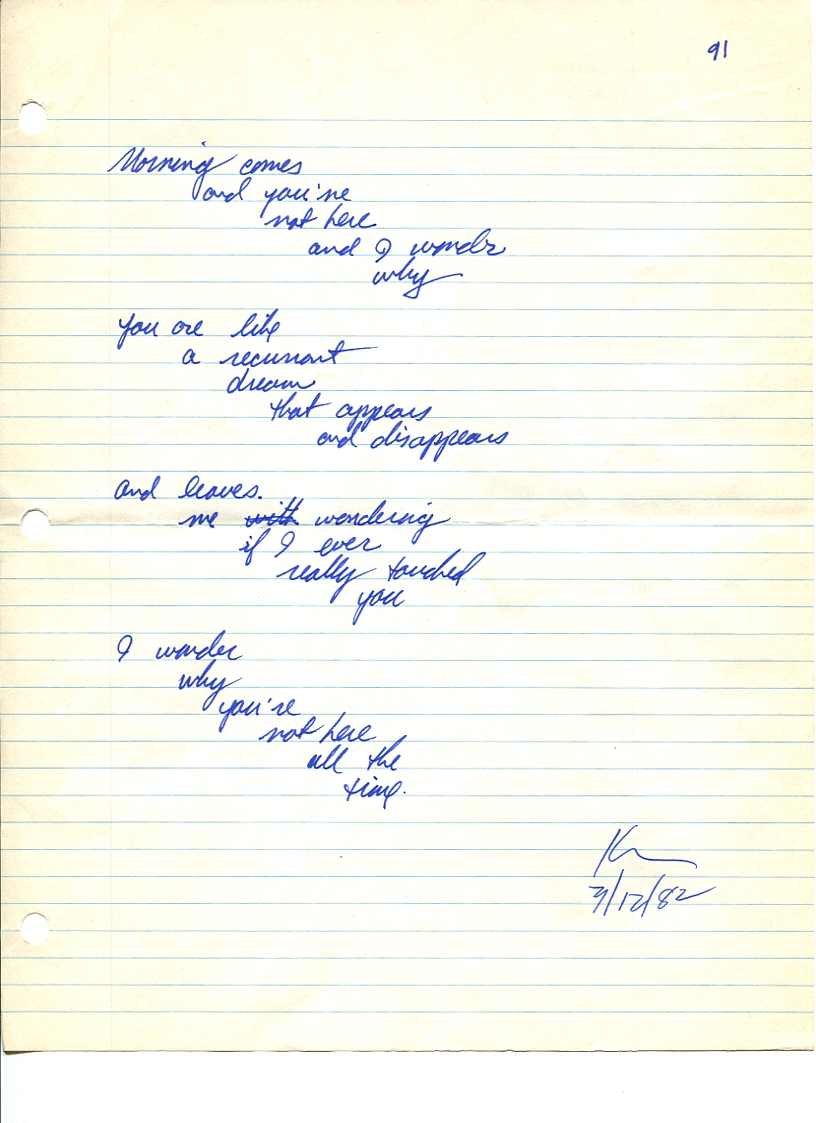 91
Morning comes
and you're
not here
and I wonder
why
you are like
a recurrant
dream
that appears
and disappears
and leaves.
me with wondering
if I ever
really touched
you
I wonder
why
you're
not here
all the
time.
7/12/82